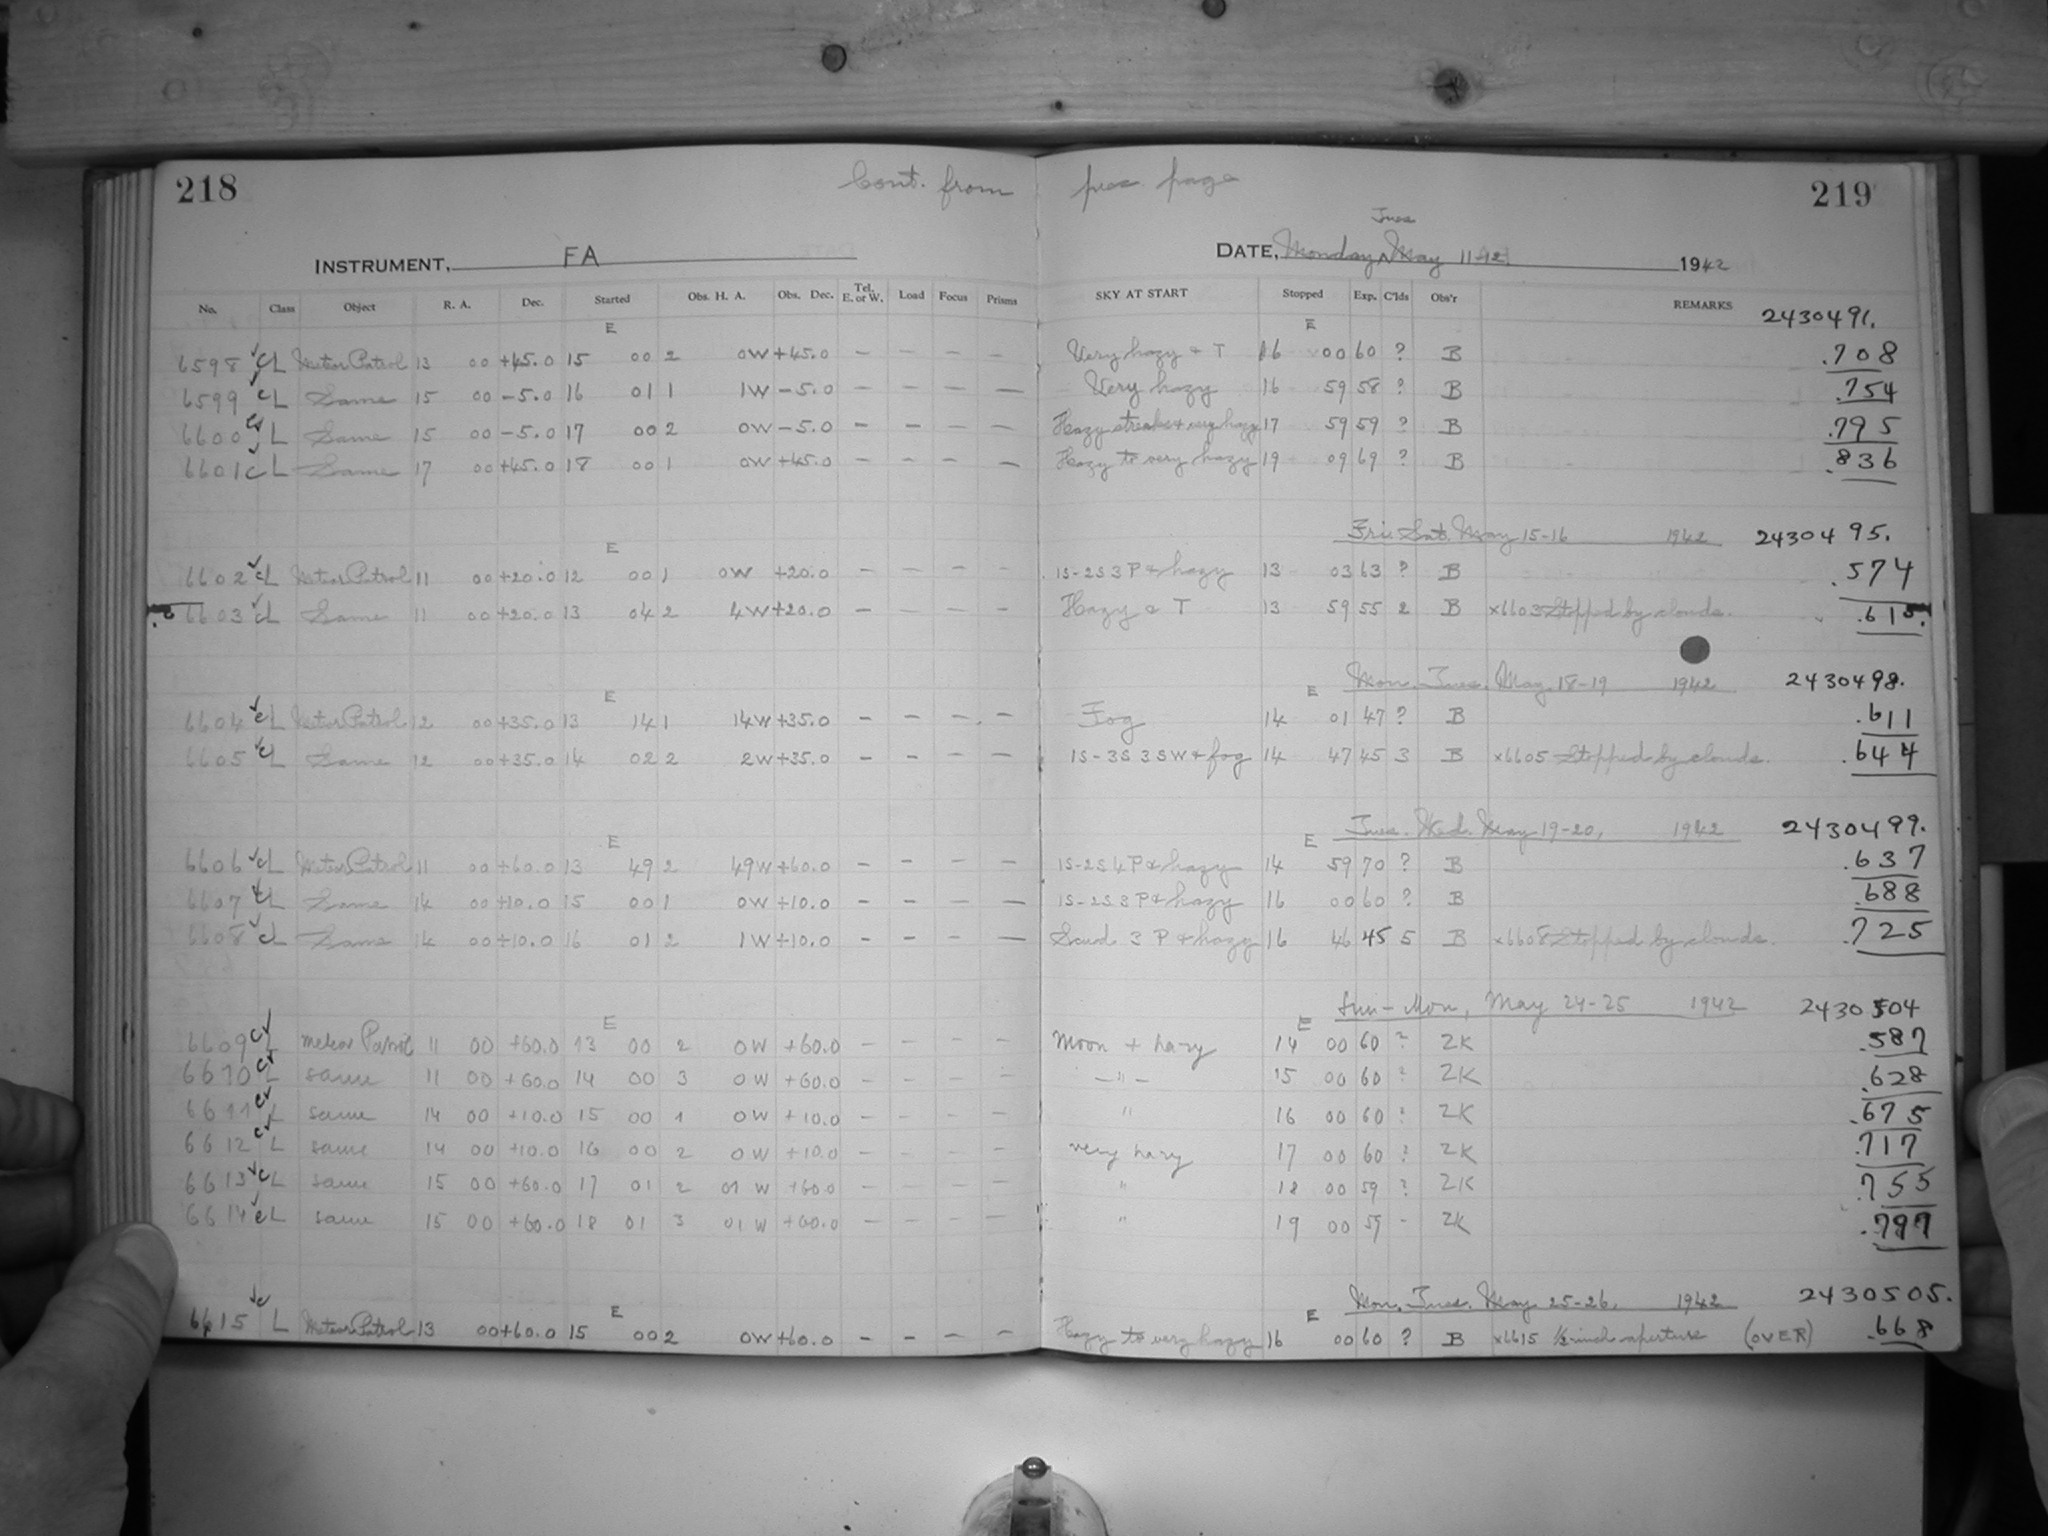 218 Cont. from prec. page 219
INSTRUMENT, FA DATE, Monday Tues May 11-12, 1942
No. Class Object R. A. Dec. Started Obs. H. A. Obs. Dec. Tel. E. or W. Load Focus Prisms SKY AT START Stopped Exp. C'lds Obs'r REMARKS 2430491.
E E
6598 CL Meteor Patrol 13 00 +45.0 15 00 2 0W +45.0 – – – – Very hazy + T 16 00 60 ? B .708
6599 CL Same 15 00 -5.0 16 01 1 1W -5.0 – – – – Very hazy 16 59 58 ? B .754
6600 L Same 15 00 -5.0 17 00 2 0W -5.0 – – – – Hazy streaks + very hazy 17 59 59 ? B .795
6601 CL Same 17 00 +45.0 18 00 1 0W +45.0 – – – – Hazy to very hazy 19 09 69 ? B .836
Fri. Sat. May 15-16 1942 2430495.
E
6602 CL Meteor Patrol 11 00 +20.0 12 00 1 0W +20.0 – – – – 1S-2S 3 P + hazy 13 03 63 ? B .574
6603 CL Same 11 00 +20.0 13 04 2 4W +20.0 – – – – Hazy & T 13 59 55 2 B x6603 Stopped by clouds. .615
E E Mon. Tues. May 18-19 1942 2430498.
6604 CL Meteor Patrol 12 00 +35.0 13 14 1 14W +35.0 – – – – Fog 14 01 47 ? B .611
6605 CL Same 12 00 +35.0 14 02 2 2W +35.0 – – – – 1S-3S 3 SW + fog 14 47 45 3 B x6605 Stopped by clouds. .644
E E Tues. Wed. May 19-20, 1942 2430499.
6606 CL Meteor Patrol 11 00 +60.0 13 49 2 49W +60.0 – – – – 1S-2S 4 P & hazy 14 59 70 ? B .637
6607 CL Same 14 00 +10.0 15 00 1 0W +10.0 – – – – 1S-2S 3 P & hazy 16 00 60 ? B .688
6608 CL Same 14 00 +10.0 16 01 2 1W +10.0 – – – – Scud 3 P + hazy 16 46 45 5 B x6608 Stopped by clouds. .725
E E Sun-Mon, May 24-25 1942 2430504
6609 CL Meteor Patrol 11 00 +60.0 13 00 2 0W +60.0 – – – – Moon + hazy 14 00 60 ? ZK .587
6610 CL same 11 00 +60.0 14 00 3 0W +60.0 – – – – – " – 15 00 60 ? ZK .628
6611 CL same 14 00 +10.0 15 00 1 0W +10.0 – – – – " 16 00 60 ? ZK .675
6612 CL same 14 00 +10.0 16 00 2 0W +10.0 – – – – very hazy 17 00 60 ? ZK .717
6613 CL same 15 00 +60.0 17 01 2 01 W +60.0 – – – – " 18 00 59 ? ZK .755
6614 CL same 15 00 +60.0 18 01 3 01 W +60.0 – – – – " 19 00 59 - ZK .797
E E Mon. Tues. May 25-26, 1942 2430505.
6615 CL Meteor Patrol 13 00 +60.0 15 00 2 0W +60.0 – – – – Hazy to very hazy 16 00 60 ? B x6615 ½-inch aperture (OVER) .668